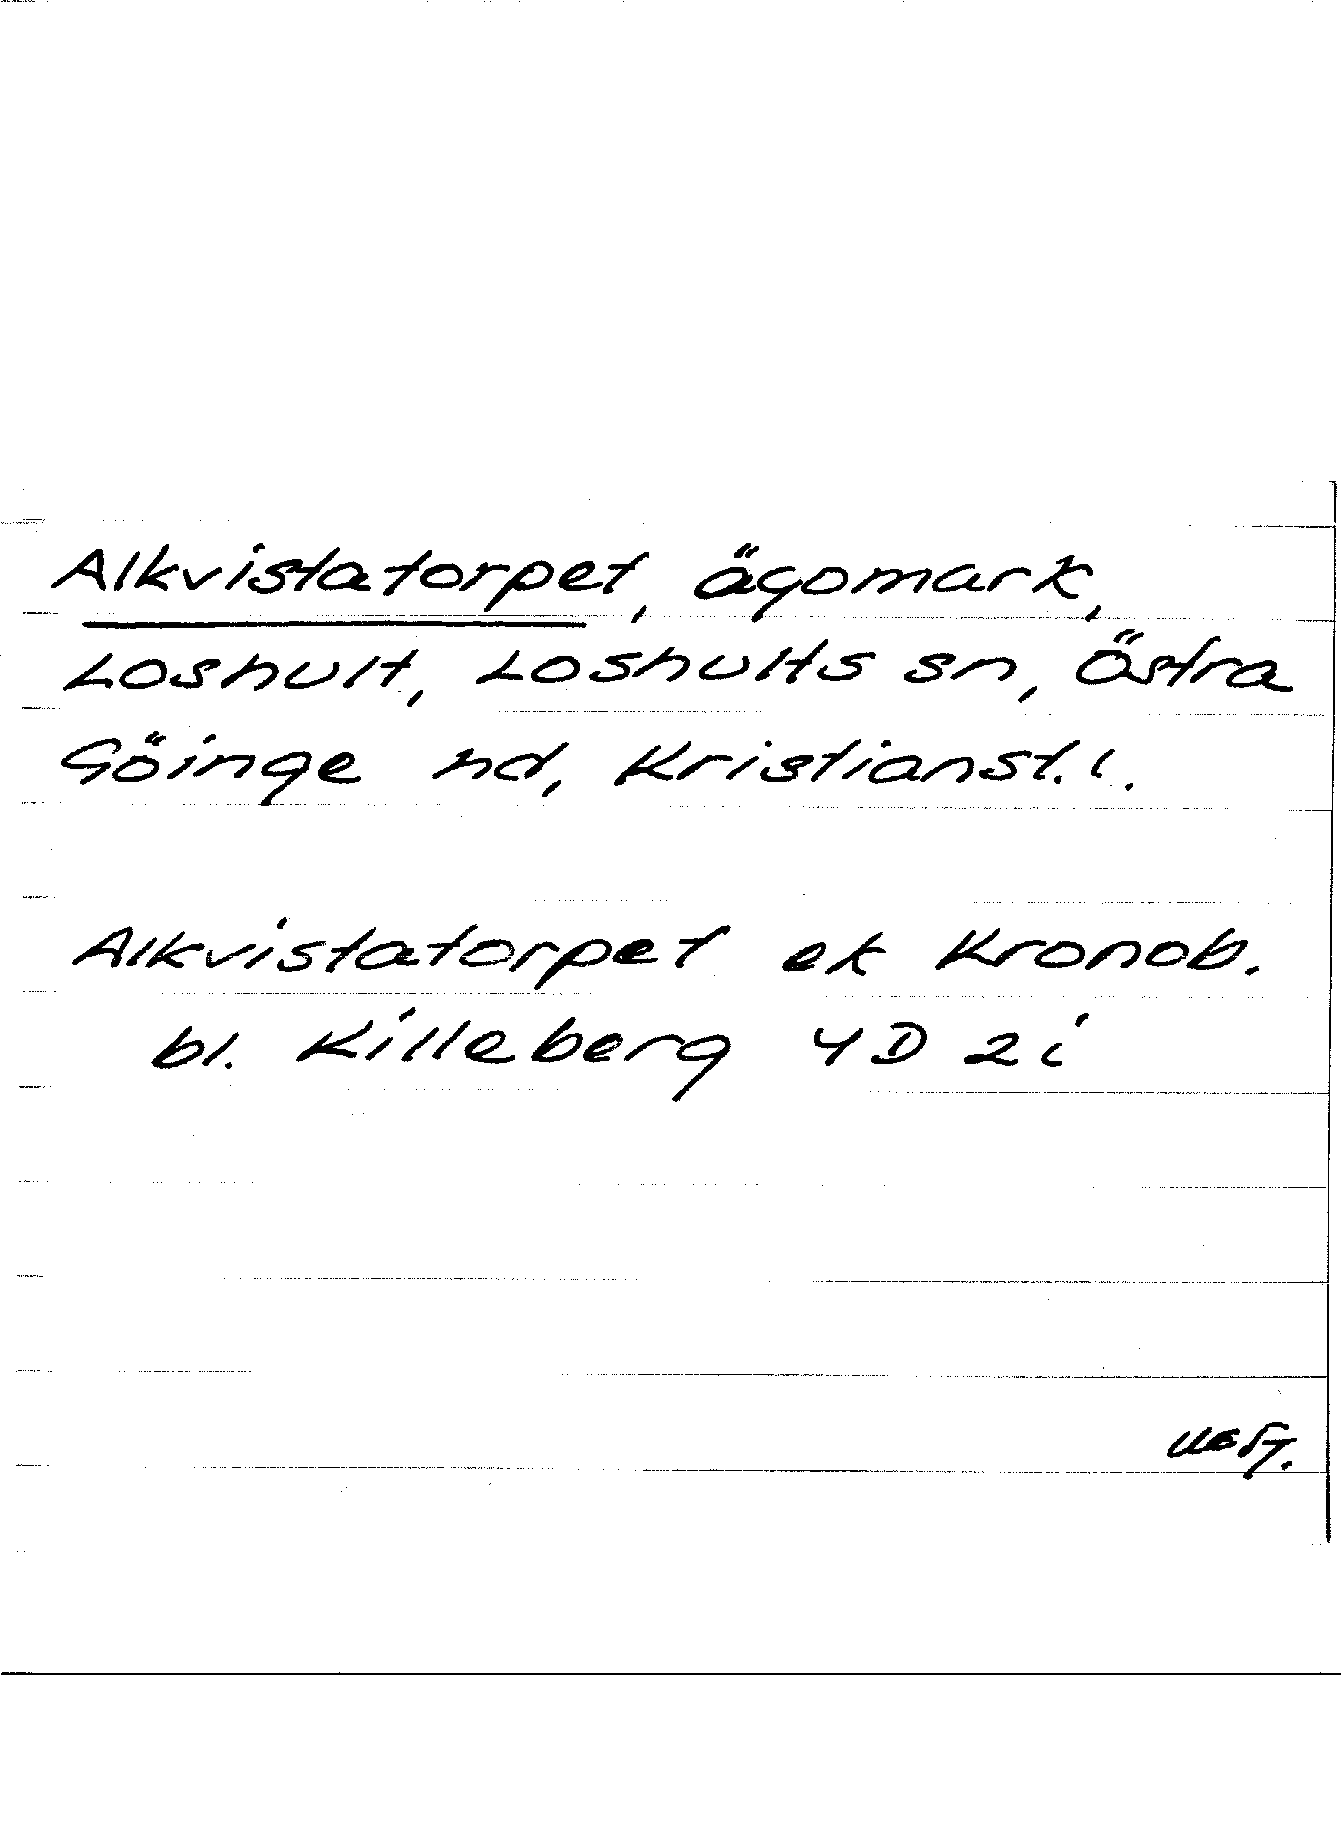 Alkvistatorpet, ägomark,
Loshult, Loshults sn, Östra
Göinge hd, Kristianst. l.
Alkvistatorpet ek Kronob.
bl. Killeberg 4D 2i